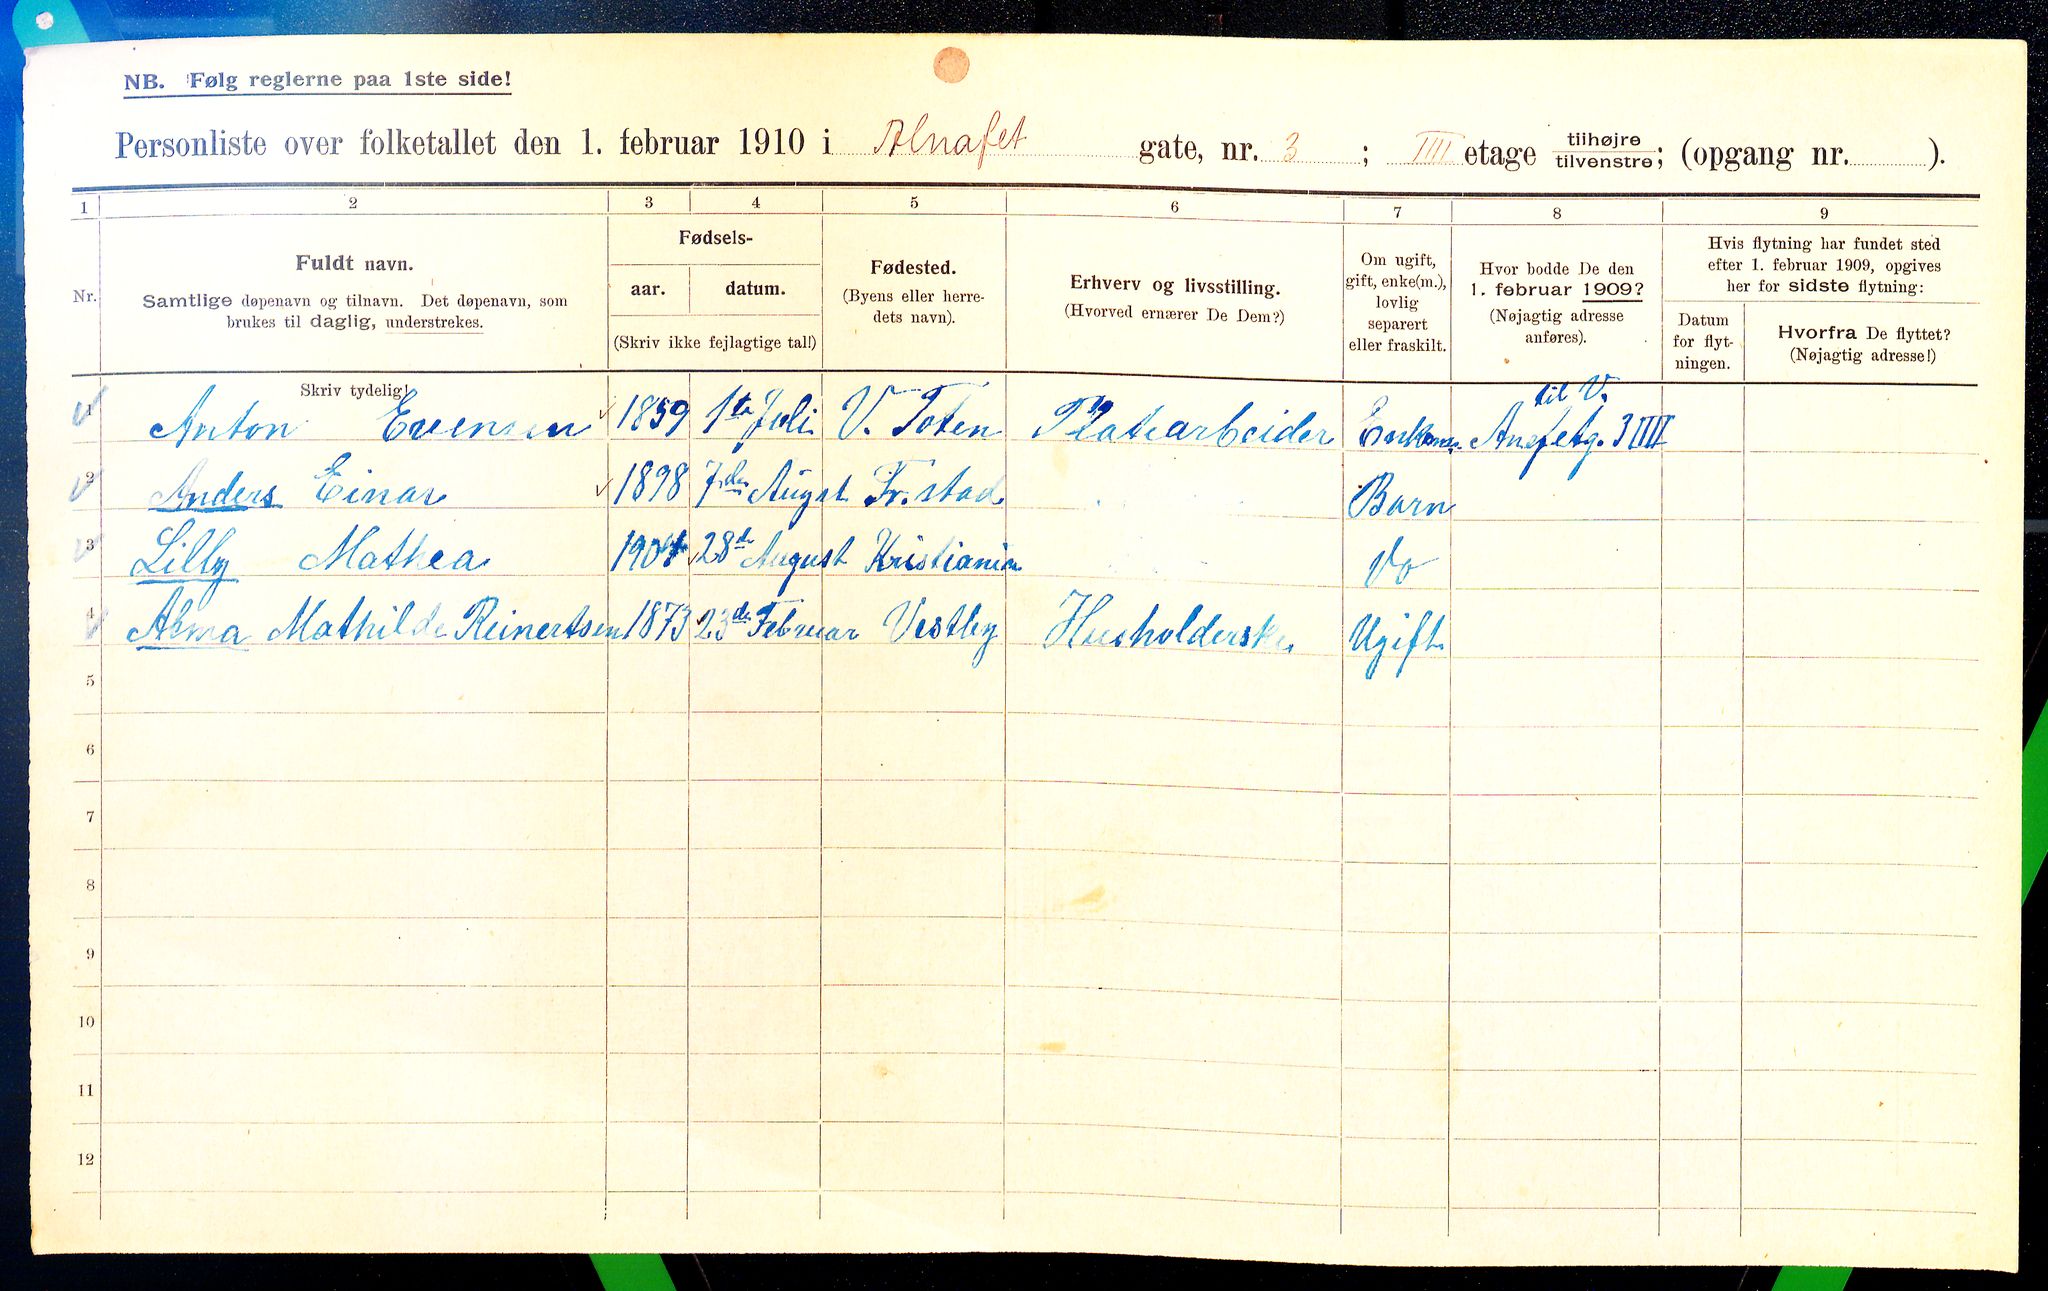 NB. Følg reglerne paa 1ste side!
Personliste over folketallet den 1. februar 1910 i Alnafet gate, nr. 3 ; IIII etage tilhøjre tilvenstre; (opgang nr. ).
1 2 3 4 5 6 7 8 9
Nr.
Fuldt navn.
Samtlige døpenavn og tilnavn. Det døpenavn, som
brukes til daglig, understrekes.
Skriv tydelig!
Fødsels-
aar. datum.
(Skriv ikke fejlagtige tal!)
Fødested.
(Byens eller herre-
dets navn).
Erhverv og livsstilling.
(Hvorved ernærer De Dem?)
Om ugift,
gift, enke(m.),
lovlig
separert
eller fraskilt.
Hvor bodde De den
1. februar 1909?
(Nøjagtig adresse
anføres).
Hvis flytning har fundet sted
efter 1. februar 1909, opgives
her for sidste flytning:
Datum
for flyt-
ningen.
Hvorfra De flyttet?
(Nøjagtig adresse!)
til V.
1 Anton Evensen 1859 1ste Juli V. Toten Platearbeider Enkem. 3 IIII
2 Anders Einar 1898 7de Augst Fr.stad Barn
3 Lilly Mathea 1904 28de August Kristiania Do
4 Alma Mathilde Reinertsen 1873 23de Februar Vestby Husholderske Ugift
5
6
7
8
9
10
11
12